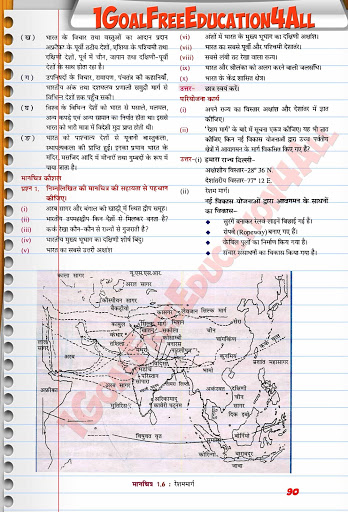 1GoalFreeEducation4All
(ख) भारत के विचार तथा वस्तुओं का आदान प्रदान
अफ्रीका के पूर्वी तटीय देशों, एशिया के पश्चिमी तथा
दक्षिणी देशों, पूर्व में चीन, जापान तथा दक्षिणी-पूर्वी
देशों के साथ होता रहा है।
(ग) उपनिषदों के विचार, रामायण, पंचतंत्र की कहानियाँ,
भारतीय अंक तथा दशमलव प्रणाली समुद्री मार्ग से
विभिन्न देशों तक पहुँच सकी।
(घ) विश्व के विभिन्न देशों को भारत से मसाले, मलमल,
अन्य कपड़े एवं अन्य सामान का निर्यात होता था। इससे
भारत को भारी मात्रा में विदेशी मुद्रा प्राप्त होती थी।
(ङ) भारत को पाश्चात्य देशों से यूनानी वास्तुकला,
स्थापत्यकला की प्राप्ति हुई। इनका प्रभाव भारत के
मंदिर, मसजिद आदि में मीनारों तथा गुम्बदों के रूप में
पाया जाता है।
मानचित्र कौशल
प्रश्न 1. निम्नलिखित की मानचित्र की सहायता से पहचान
कीजिए।
(i) अरब सागर और बंगाल की खाड़ी में स्थित द्वीप समूह।
(ii) भारतीय उपमहाद्वीप किन देशों से मिलकर बनता है?
(iii) कर्क रेखा कौन-कौन से राज्यों से गुजरती है?
(iv) भारतीय मुख्य भूभाग का दक्षिणी शीर्ष बिंदु।
(v) भारत का सबसे उत्तरी अक्षांश
(vi) अंशों में भारत के मुख्य भूभाग का दक्षिणी अक्षांश।
(vii) भारत का सबसे पूर्वी और पश्चिमी देशांतर।
(viii) सबसे लंबी तट रेखा वाला राज्य।
(ix) भारत और श्रीलंका को अलग करने वाली जलसंधि।
(x) भारत के केंद्र शासित क्षेत्र।
उत्तर- छात्र स्वयं करें।
परियोजना कार्य
(i) अपने राज्य का विस्तार अक्षांश और देशांतर में ज्ञात
कीजिए।
(ii) 'रेशम मार्ग' के बारे में सूचना एकत्र कीजिए। यह भी ज्ञात
कीजिए किन नई विकास योजनाओं द्वारा उच्च पर्वतीय
क्षेत्रों में आवागमन के मार्ग विकसित किए गए हैं?
उत्तर-(i) हमारा राज्य दिल्ली-
अक्षांशीय विस्तार-28° 36 N.
देशांतरीय विस्तार-77° 12 E.
(ii) रेशम मार्ग।
नई विकास योजनाओं द्वारा आवागमन के साधनों
का विकास-
◆ सुरंगें बनाकर रेलवे लाइनें बिछाई गई हैं।
◆ रोपवे (Ropeway) बनाए गए हैं।
◆ केबिल पुलों का निर्माण किया गया है।
◆ संचार संसाधनों का विकास किया गया है।
काला सागर
यू.एस.एस.आर.
अरल सागर
कैस्पीयन सागर
काबुल
कंधार
मिशन
चीन
कोरिया
शंघाई
प्रशांत महासागर
अरब
अफ्रीका
सोपारा
विषुवत वृत्त
बोर्नियो
जावा
मानचित्र 1.6 : रेशममार्ग
90
1GoalFreeEducation4All